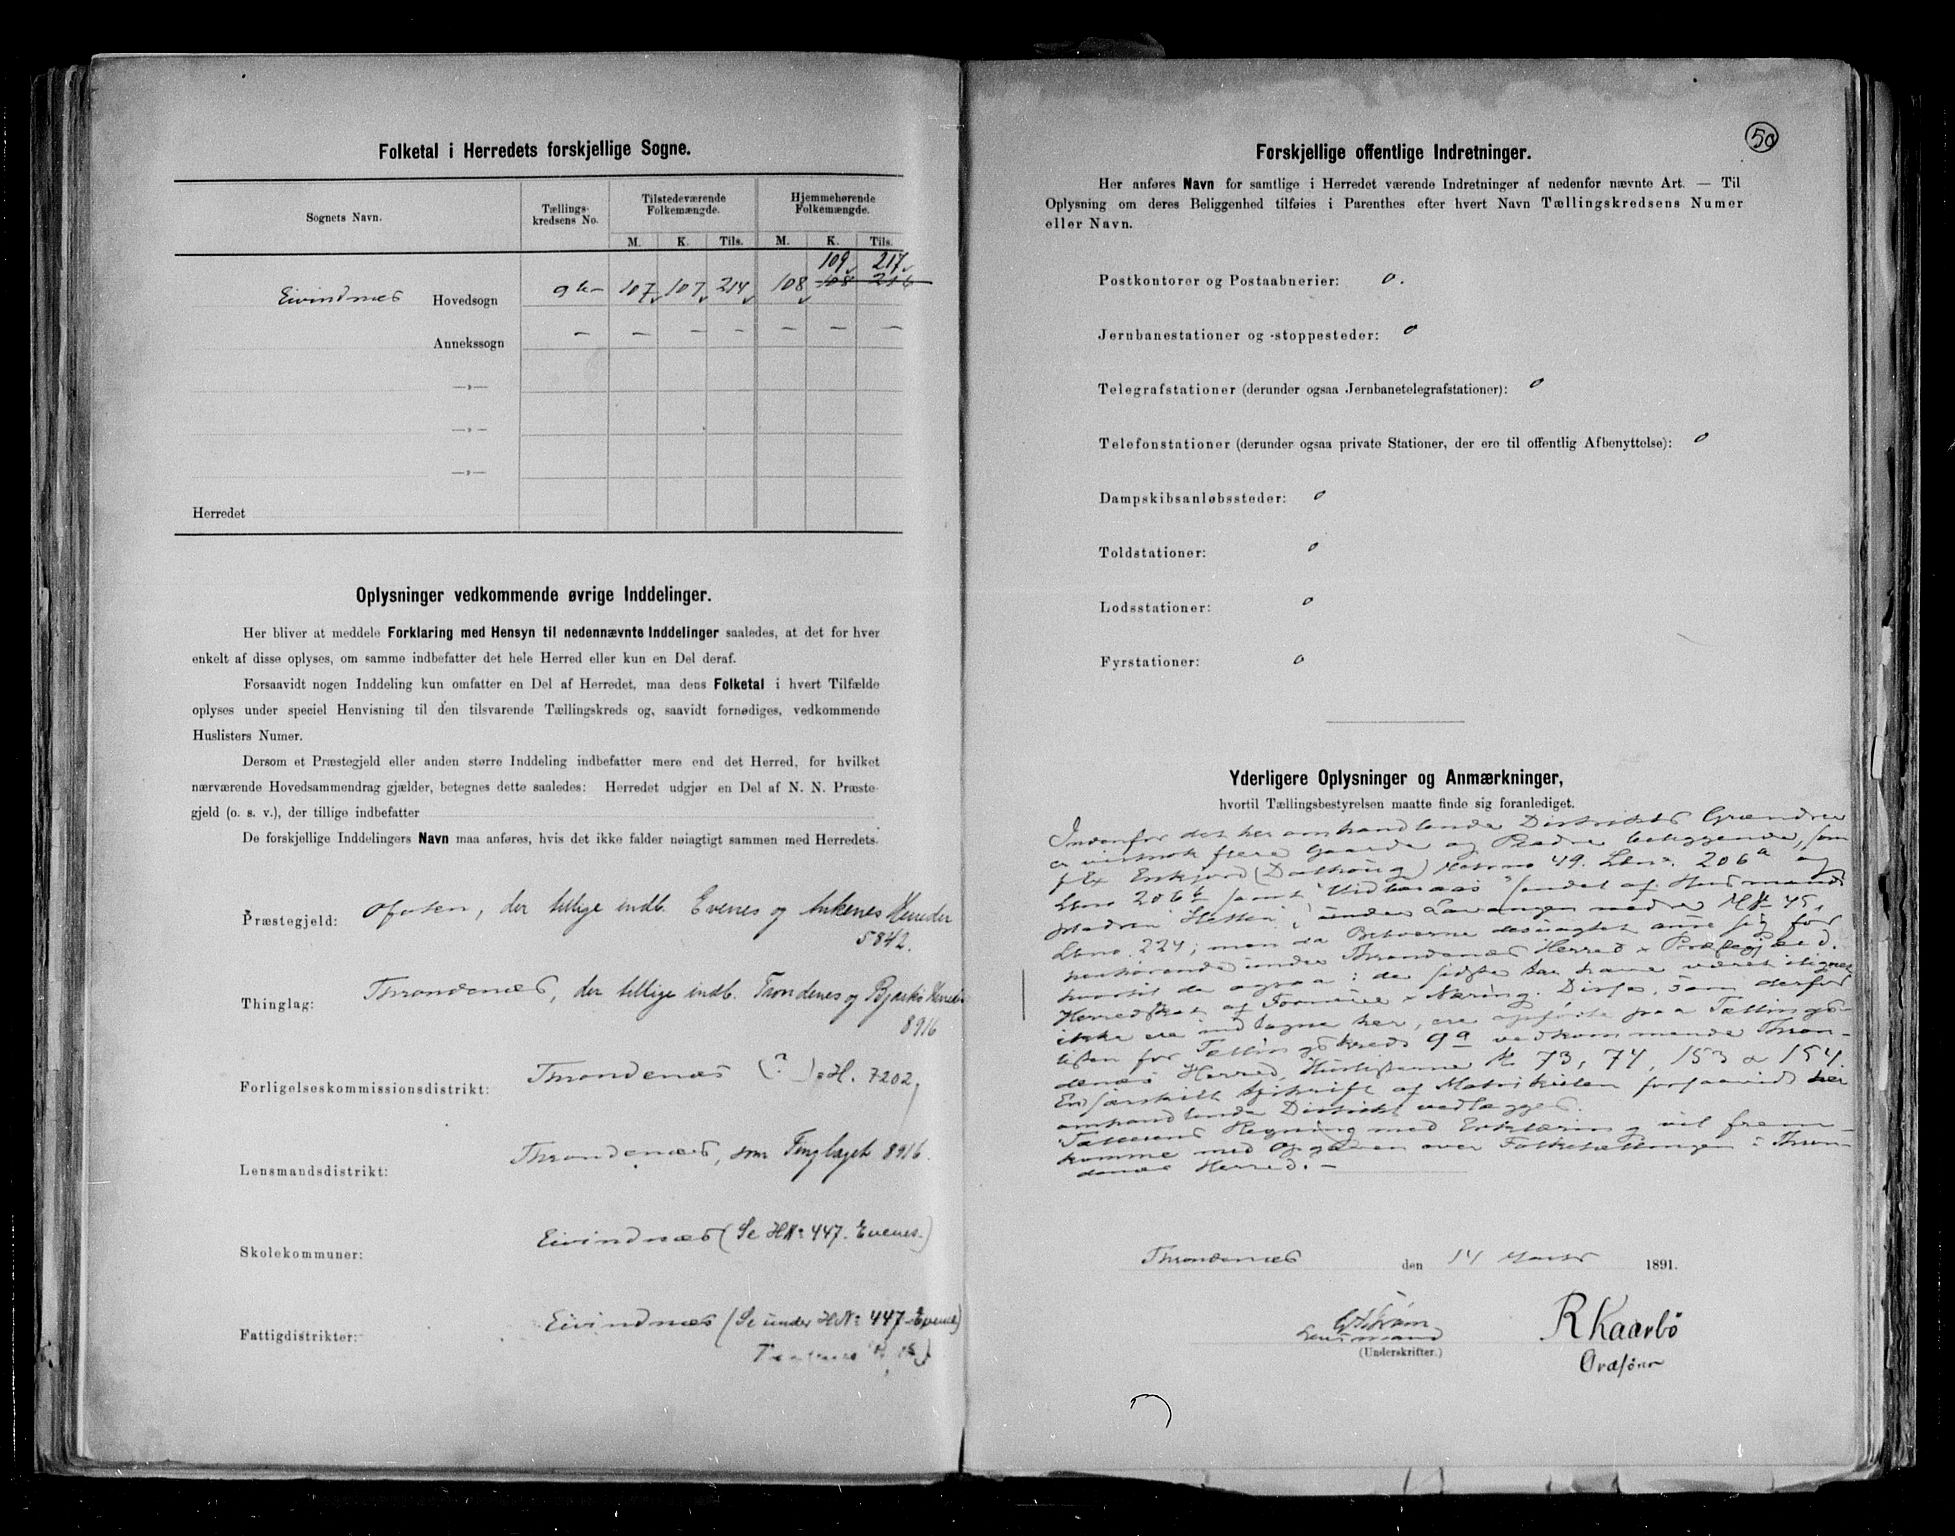 Folketal i Herredets forskjellige Sogne.
Sognets Navn.
Tællings-
kredsens No.
Tilstedeværende
Folkemængde.
Hjemmehørende
Folkemængde.
M. K. Tils. M. K. Tils.
109 217
Eivindnæs Hovedsogn 107 107 214 108 108 216
— — — — — — —
Annekssogn
—„—
—„—
—„—
Herredet
Oplysninger vedkommende øvrige Inddelinger.
Her bliver at meddele Forklaring med Hensyn til nedennævnte Inddelinger saaledes, at det for hver
enkelt af disse oplyses, om samme indbefatter det hele Herred eller kun en Del deraf.
Forsaavidt nogen Inddeling kun omfatter en Del af Herredet, maa dens Folketal i hvert Tilfælde
oplyses under speciel Henvisning til den tilsvarende Tællingskreds og, saavidt fornødiges, vedkommende
Huslisters Numer.
Dersom et Præstegjeld eller anden større Inddeling indbefatter mere end det Herred, for hvilket
nærværende Hovedsammendrag gjælder, betegnes dette saaledes: Herredet udgjør en Del af N. N. Præste-
gjeld (o. s. v.), der tillige indbefatter
De forskjellige Inddelingers Navn maa anføres, hvis det ikke falder nøiagtigt sammen med Herredets.
Præstegjeld: Ofoten, der tillige indb. Evenes og Ankenes Herreder
5842.
Thinglag: Throndenæs, der tillige indb. Trondenes og Bjarkø Herreder
8916
Forligelseskommissionsdistrikt: Throndenæs (?) = H. 7202
Lensmandsdistrikt: Throndenæs, som Tinglaget 8916.
Skolekommuner: Eivindnæs (Se HN: 447. Evenes.)
Fattigdistrikter: Eivindnæs (Se under HN: 447 Evenes)
50
Forskjellige offentlige Indretninger.
Her anføres Navn for samtlige i Herredet værende Indretninger af nedenfor nævnte Art. — Til
Oplysning om deres Beliggenhed tilføies i Parenthes efter hvert Navn Tællingskredsens Numer
eller Navn.
Postkontorer og Postaabnerier: 0.
Jernbanestationer og -stoppesteder: 0
Telegrafstationer (derunder ogsaa Jernbanetelegrafstationer): 0
Telefonstationer (derunder ogsaa private Stationer, der ere til offentlig Afbenyttelse): 0
Dampskibsanløbssteder: 0
Toldstationer: 0
Lodsstationer: 0
Fyrstationer: 0
Yderligere Oplysninger og Anmærkninger,
hvortil Tællingsbestyrelsen maatte finde sig foranlediget.
Indenfor det her omhandlende Distrikts Grændser
er vistnok flere Gaarde og Pladse beliggende, som
f Ex 49. Lbno. 206a og
Lbno 206b samt af Husmands
pladsen under Lavangen 45,
Lbno. 224; men da Beboerne desuagtet anse sig for
henhørende under Throndenæs Herred & Præstegjæld.
hvortil de ogsaa: de sidste har været
Herredskat af Formue & Næring. som derfor
ikke ere indtagne her, ere opførte paa Tællings-
listen for Tællingskreds 9a vedkommende Thron-
denæs Herred, Huslisterne No 73, 74, 153 & 154
En særskilt Afskrift af Matrikulen forsaavidt her
omhandlende Distrikt vedlægges.
Regning med Erklæring vil frem-
komme med Opgaven over Folketællingen i Thron-
denæs Herred. —
Throndenæs den 14 Marts 1891.
Lensmand
R Kaarbø
Ordfører
(Underskrifter.)